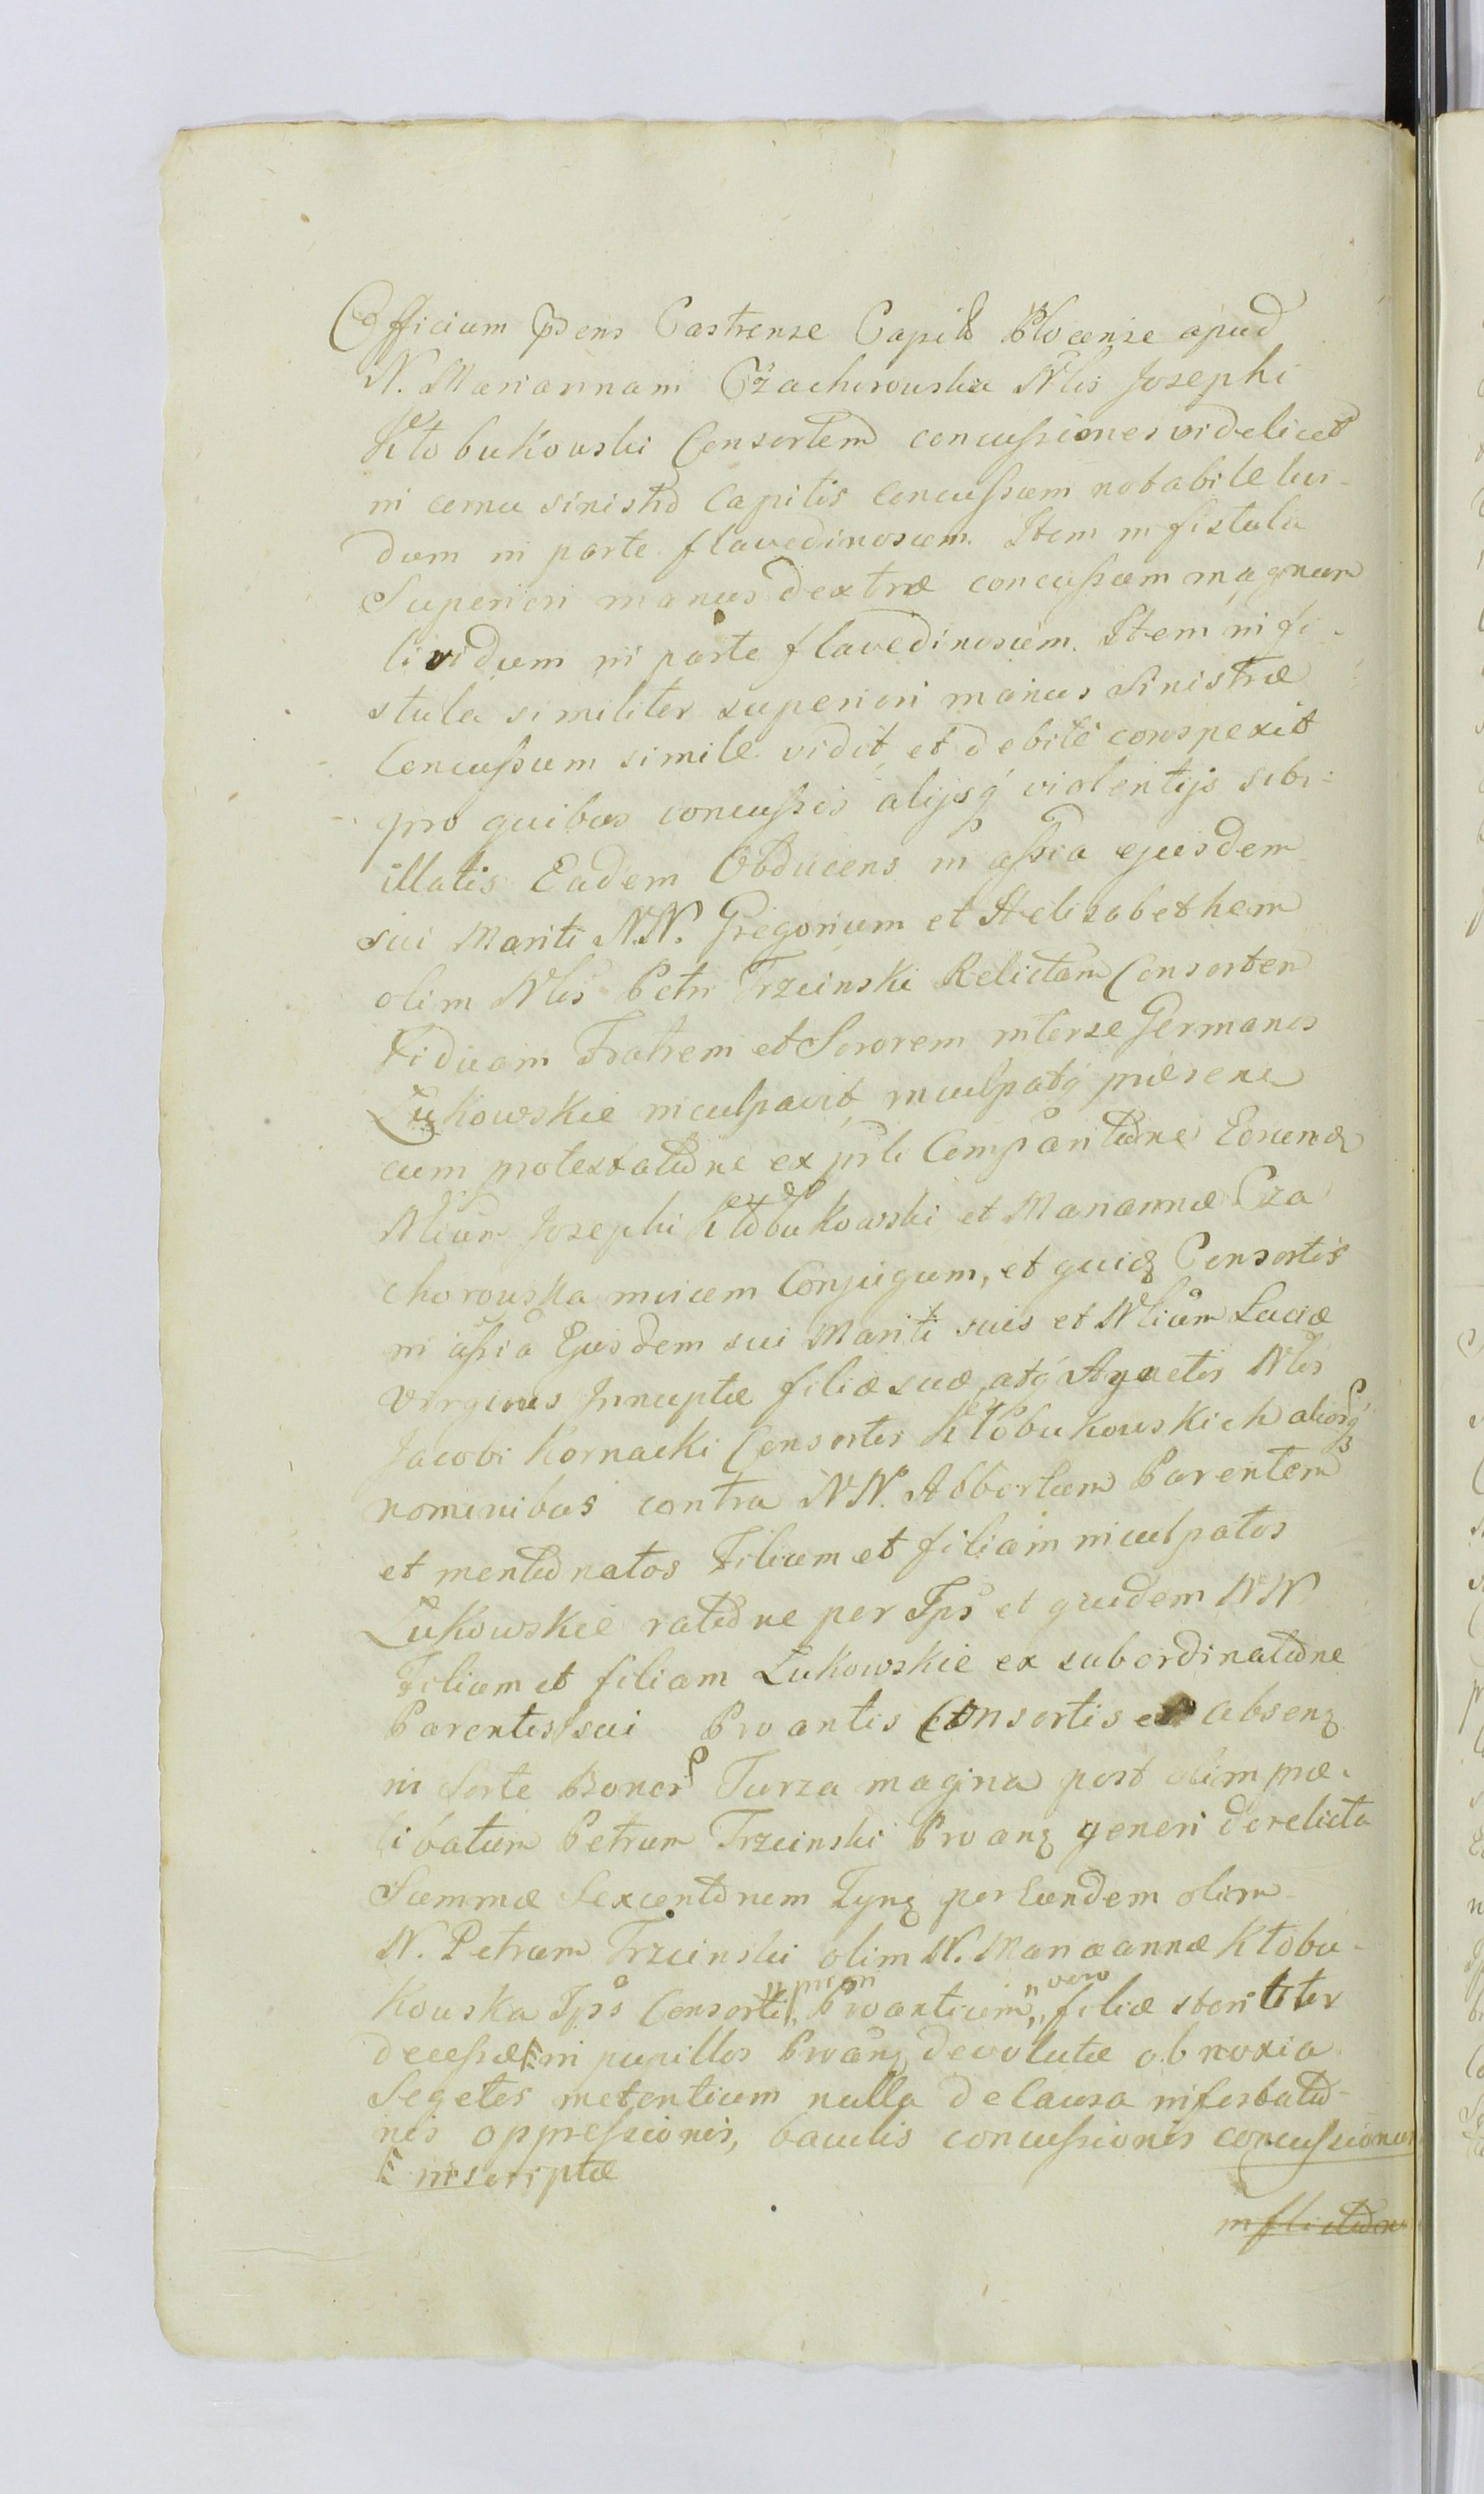 Officium Pñs Castrense Capit. Plocense apud
N. Mariannam Czachorouska Nlis Josephi
Kłobukouski Consortem concussiones videlicet
in cornu sinistro Capitis concussum notabile livi-
dum in parte flavedinosum. Item in fistula
Superiori manus dextræ concussum magnum
lividum in parte flavedinosum. Item in fi-
stula similiter superiori manus Sinistræ
Concussum simile vidit, et debite conspexit
pro quibus concussis alijsq violentijs sibi
illatis Eadem Obducens in assia ejusdem
sui Mariti NN. Gregorium et Helisabethem
olim Nlis Petri Trzcinski Relictam Consortem
Viduam Fratrem et Sororem inter se Germanos
Łukowskie inculpavit, inculpatq præsens
cum protestatione ex prli Comparitione Eorund
Nlium Josephi Kłobukowski et Mariannæ Cza
chorouska invicem Conjugum, et quid Consortis
in assia Ejusdem sui Mariti suis et Nlium Luciæ
Virginis Innuptæ filiæ suæ, atq Agnetis Nlis
Jacobi Kornacki Consortis Kłobukouskich aliorq
nominibus contra NN. Albertum Parentem
et mentionatos Filium et filiam inculpatos
Łukowskie ratione per Ips et quidem NN
Filium et filiam Łukowskie ex subordinatione
Parentis sui Proantis Consortis et absenq
in Sorte Bonor Turza magna post olim præ-
libatum Petrum Trzcinski Proanq generi derelicta
Summæ Sexcentorum Tynq per Eundem olim
N. Petrum Trzcinski olim N. Mariaannæ Kłobu-
kouska Ips Consorti Proantium,, vero filiæ steriliter
decessæ in pupillos Proanq devolutæ obnoxia
Segetes metentium nulla de Causa infestatio-
nis oppressionis, baculis concussionis concussionum
inscriptæ
infliction